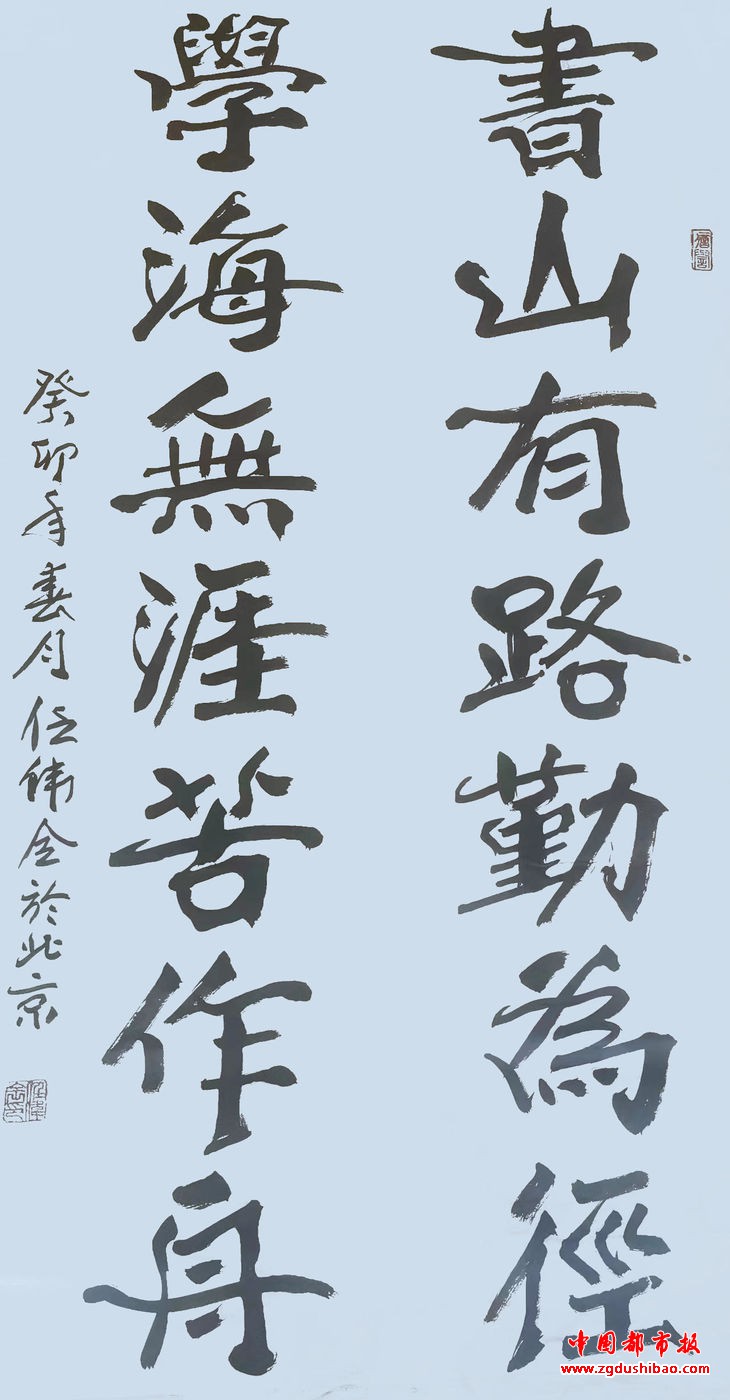 書山有路勤為徑
學海無涯苦作舟
癸卯年春月任偉金於北京
中国都市报
www.zgdushibao.com